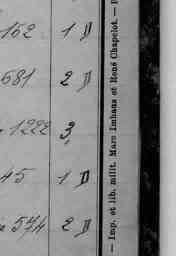 152 1 D
681 2 D
1222 3
45 1 D
574 2 D
— Imp. et lib. milit. Marc Imhaus et René Chapelot. —